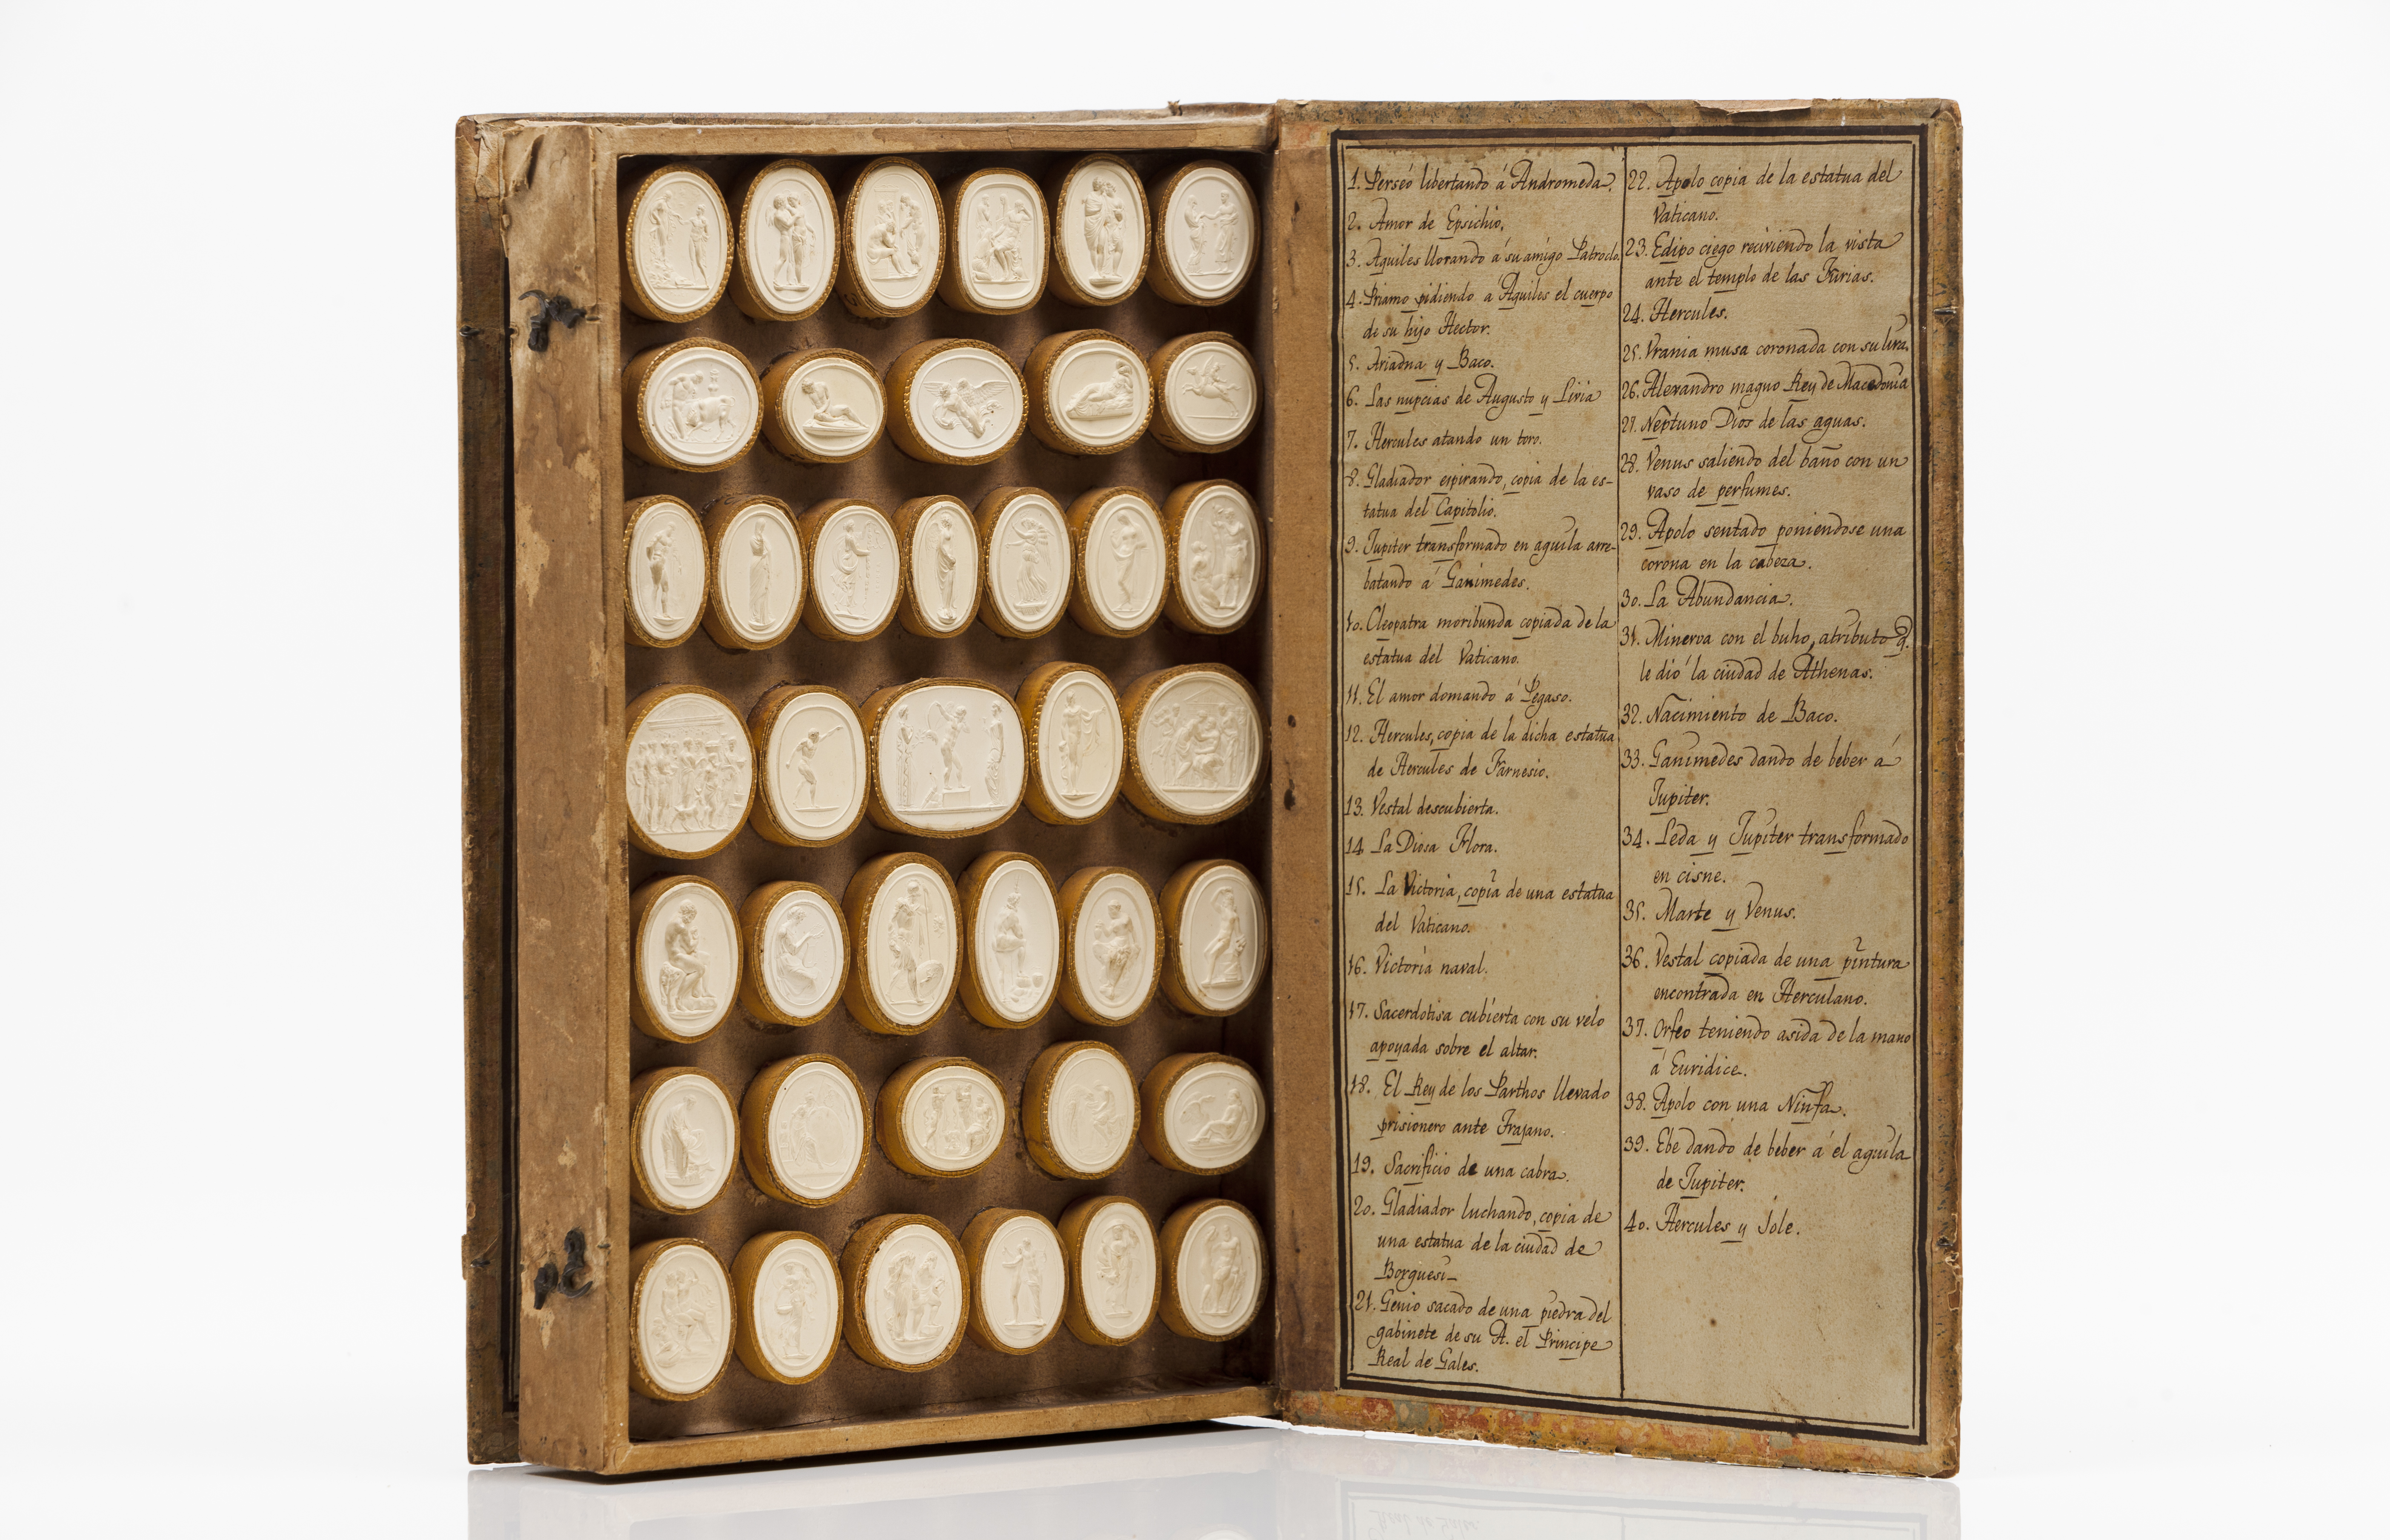 1. Perseo libertando á Andromeda.
2. Amor de Epsichio,
3. Aquiles llorando á su amigo Patroclo.
4. Priamo pidiendo a Aquiles el cuerpo
de su hijo Hector.
5. Ariadna y Baco.
6. Las nupcias de Augusto y Livia
7. Hercules atando un toro.
8. Gladiador espirando, copia de la es-
tatua del Capitolio.
9. Jupiter transformado en aguila arre-
batando á Ganimedes.
10. Cleopatra moribunda copiada de la
estatua del Vaticano.
11. El amor domando á Pegaso.
12. Hercules, copia de la dicha estatua
de Hercules de Farnesio.
13. Vestal descubierta.
14 La Diosa Flora.
15. La Victoria, copia de una estatua
del Vaticano.
16. Victoria naval.
17. Sacerdotisa cubierta con su velo
apoyada sobre el altar.
18. El Rey de los Parthos llevado
prisionero ante Trajano.
19. Sacrificio de una cabra.
20. Gladiador luchando, copia de
una estatua de la ciudad de
Borguesi_
21. Genio sacado de una piedra del
gabinete de su A. el Principe
Real de Gales.
22. Apolo copia de la estatua del
Vaticano.
23. Edipo ciego reciviendo la vista
ante el templo de las Furias.
24. Hercules.
25. Vrania musa coronada con su lira.
26. Alexandro magno Rey de Macedonia
27. Neptuno Dios de las aguas.
28. Venus saliendo del baño con un
vaso de perfumes.
29. Apolo sentado poniendose una
corona en la cabeza.
30. La Abundancia.
31. Minerva con el buho, atributo q.
le dió la ciudad de Athenas.
32. Nacimiento de Baco.
33. Ganimedes dando de beber á
Jupiter.
34. Leda y Jupiter transformado
en cisne.
35. Marte y Venus.
36. Vestal copiada de una pintura
encontrada en Herculano.
37. Orfeo teniendo asida de la mano
á Euridice.
38. Apolo con una Ninfa.
39. Ebe dando de beber á el aguila
de Jupiter.
40. Hercules y Jole.